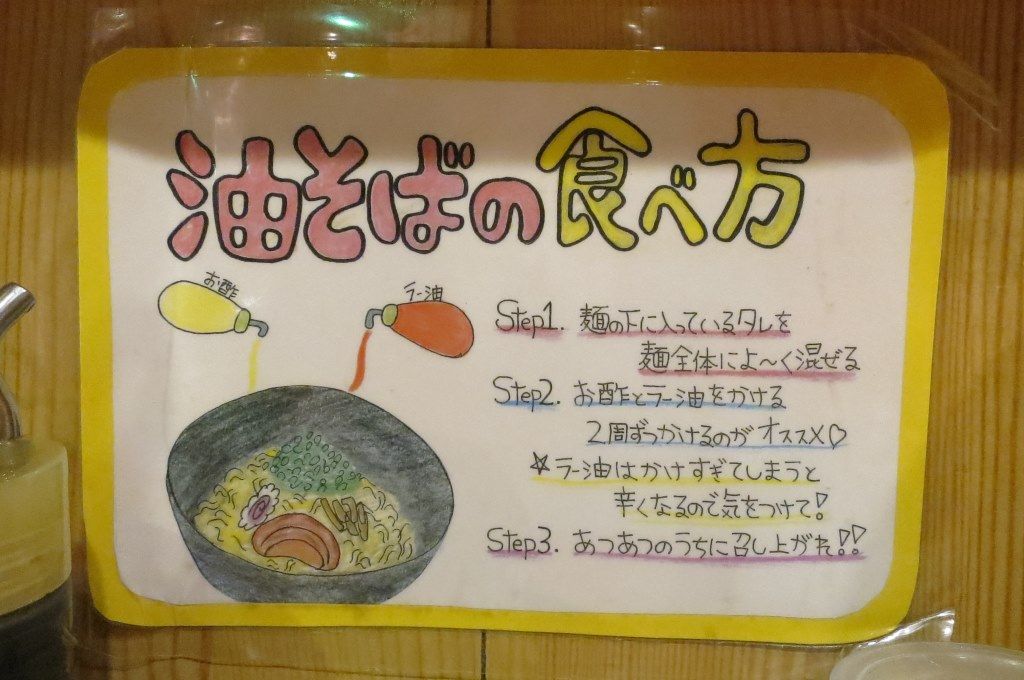 油そばの食べ方
お酢
ラー油
Step1. 麺の下に入っているタレを
麺全体によ〜く混ぜる
Step2. お酢とラー油をかける
2周ずつかけるのがオススメ♡
☆ラー油はかけすぎてしまうと
辛くなるので気をつけて!
Step3. あつあつのうちに召し上がれ!!